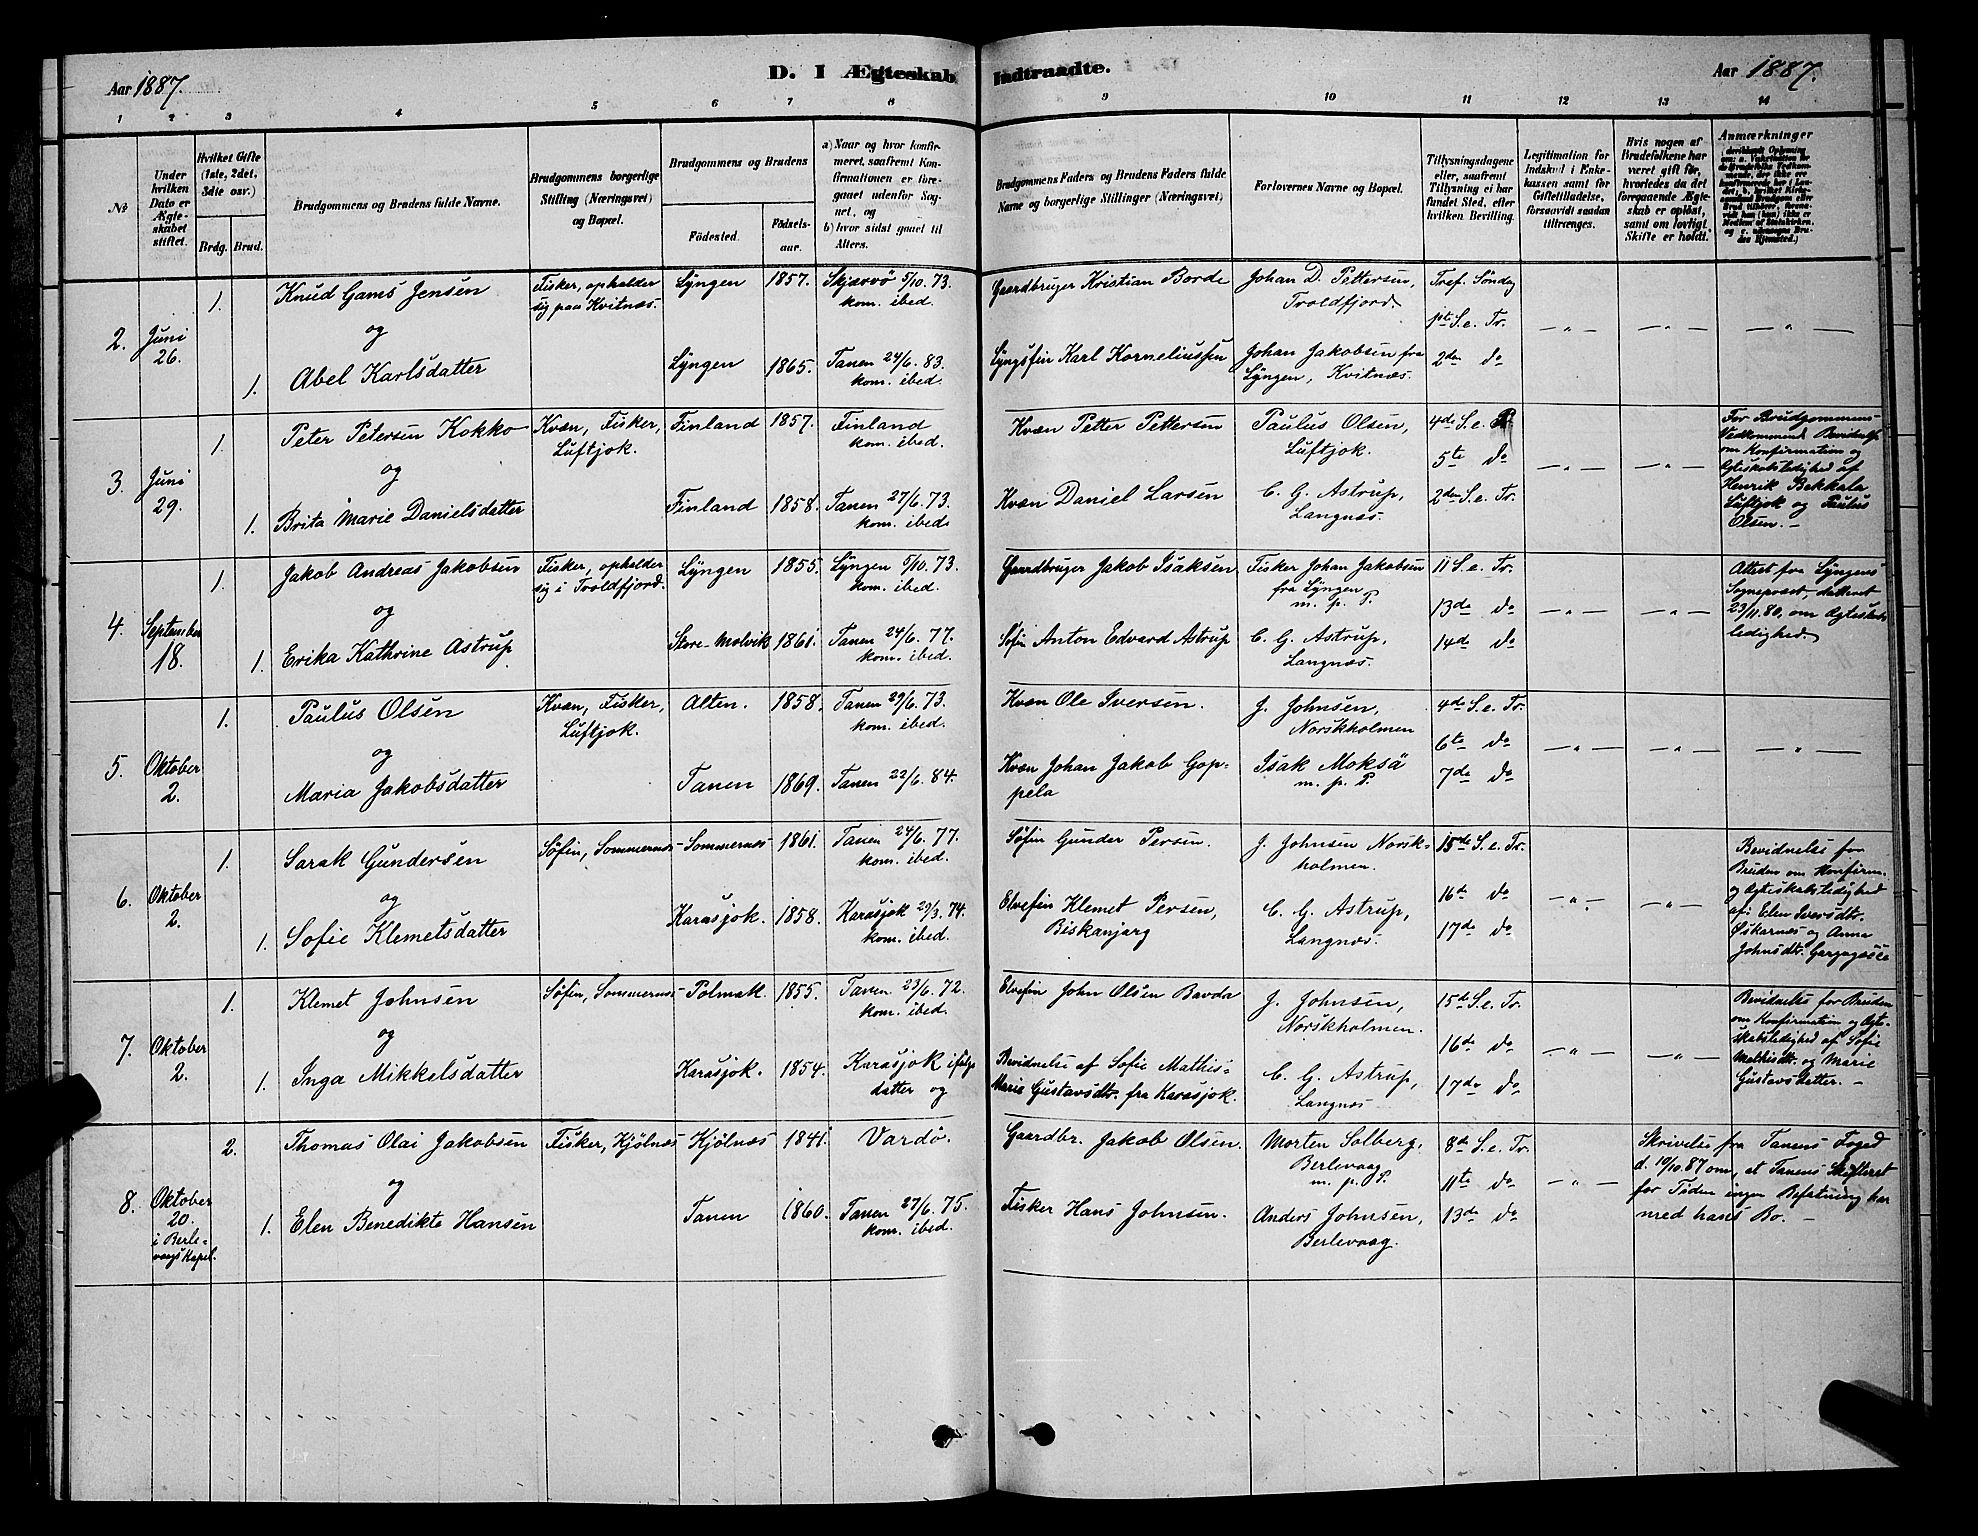 Aar 1887.
D. I Ægteskab Indtraadte.
Aar 1887.
1 2 3 4 5 6 7 8 9 10 11 12 13 14
№
Under hvilken Dato er Ægteskabet stiftet.
Hvilket Gifte (1ste, 2det, 3die osv.)
Brdg. Brud.
Brudgommens og Brudens fulde Navne.
Brudgommens borgerlige Stilling (Næringsvei) og Bopæl.
Brudgommens og Brudens
Fødested.
Fødselsaar.
a) Naar og hvor konfirmeret, saafremt Konfirmationen er foregaaet udenfor Sognet, og
b) hvor sidst gaaet til Alters.
Brudgommens Faders og Brudens Faders fulde Navne og borgerlige Stillinger (Næringsvei)
Forlovernes Navne og Bopæl.
Tillysningsdagene eller, saafremt Tillysning ei har fundet Sted, efter hvilken Bevilling.
Legitimation for Indskud i Enkekassen samt for Giftetilladelse, forsaavidt saadan tiltrænges.
Hvis nogen af Brudefolkene har været gift før, hvorledes da det foregaaende Ægteskab er opløst, samt om lovligt Skifte er holdt.
Anmærkninger
2.
Juni
26.
1.
Knud Gams Jensen
og
1.
Abel Karlsdatter
Fisker, opholder
sig paa Kvitnæs.
Lyngen 1857.
Skjærvö 5/10. 73.
kom. ibed.
Lyngen 1865.
Tanen 24/6. 83.
kom. ibed.
Gaardbruger Kristian Borde
Lyngsfin Karl Korneliussen
Johan D. Pettersen,
Troldfjord.
Johan Jakobsen fra
Lyngen, Kvitnæs.
Tref. Söndag
1ste S. e. Tr.
2den do
— „ — — „ — — „ —
3.
Juni
29.
1.
Peter Petersen Kokko
og
1.
Brita Marie Danielsdatter
Kvæn, Fisker,
Luftjok.
Finland 1857.
Finland
kom. ibed.
Finland 1858.
Tanen 27/6. 73.
kom. ibed.
Kvæn Petter Pettersen
Kvæn Daniel Larsen
Paulus Olsen,
Luftjok.
C. G. Astrup,
Langnæs.
4de S. e. P.
5te do
2den S. e. Tr.
— „ — — „ —
For Brudgommens
Vedkommende Bevidnelse
om Konfirmation og
Ægteskabsledighed af
Henrik Bekkala
Luftjok og Paulus
Olsen. —
4.
September
18.
1.
Jakob Andreas Jakobsen
og
1.
Erika Kathrine Astrup
Fisker, opholder
sig i Troldfjord.
Lyngen 1855.
Lyngen 5/10. 73.
kom. ibed.
Store-Molvik 1861.
Tanen 24/6. 77.
kom. ibed.
Gaardbruger Jakob Isaksen
Söfin Anton Edvard Astrup
Fisker Johan Jakobsen
fra Lyngen
m. p. P.
C. G. Astrup,
Langnæs.
11 S. e. Tr.
13de do
14de do
— „ — — „ —
Attest fra Lyngens
Sognepræst, dateret
23/11. 80, om Ægteskabs
ledighed.
5.
Oktober
2.
1.
Paulus Olsen
og
Maria Jakobsdatter
Kvæn, Fisker,
Luftjok.
Alten. 1858.
Tanen 29/6. 73.
kom. ibed.
Tanen 1869.
Tanen 22/6. 84.
Kvæn Ole Iversen.
Kvæn Johan Jakob Gop-
pela
J. Johnsen,
Norskholmen
Isak Moksä
m. p. P.
4de S. e. Tr.
6te do
7de do
— „ — — „ — — „ —
6.
Oktober
2.
1.
Sarak Gundersen
og
1.
Sofie Klemetsdatter
Söfin, Sommernæs
Sommernæs 1861.
Tanen 24/6. 77.
kom. ibed.
Karasjok. 1858.
Karasjok 29/3. 74.
kom. ibed.
Söfin Gunder Persen.
Elvefin Klemet Persen,
Biskanjarg
J. Johnsen Norsk-
holmen.
C. G. Astrup,
Langnæs.
15de S. e. Tr.
16de do
17de do
— „ — — „ —
Bevidnelse for
Bruden om Konfirm.
og Ægteskabsledighed
af: Elen Iversdtr.
Oskarnæs og Anna
Johnsdtr.
7.
Oktober
2.
1.
Klemet Johnsen
og
1.
Inga Mikkelsdatter
Söfin, Sommernæs
Polmak. 1855.
Tanen 23/6. 72.
kom. ibed.
Karasjok. 1854.
Karasjok ifölge
datter og
Elvefin John Olsen Bavda
Bevidnelse af Sofie Mathis-
Maria Gustavsdtr. fra Karasjok.
J. Johnsen,
Norskholmen.
C. G. Astrup,
Langnæs
15de S. e. Tr.
16de do
17de do
— „ — — „ —
Bevidnelse for Bruden
om Konfirmation og Ægte-
skabsledighed af Sofie
Mathisdtr. og Marie
Gustavsdatter. —
8.
Oktober
20.
i Berle-
vaags Kapel.
2.
Thomas Olai Jakobsen
og
1.
Elen Benedikte Hansen
Fisker, Kjölnæs
Kjölnæs 1841.
Vardö.
Tanen 1860.
Tanen 27/6. 75.
kom. ibed.
Gaardbr. Jakob Olsen.
Fisker Hans Johnsen.
Morten Solberg,
Berlevaag
m. p. P.
Anders Johnsen,
Berlevaag.
8de S. e. Tr.
11te do
13de do
— „ —
Skrivelse fra Tanens Foged
d. 10/10. 87 om, at Tanens Skifteret
for Tiden ingen Befatning har
med hans Bo. —